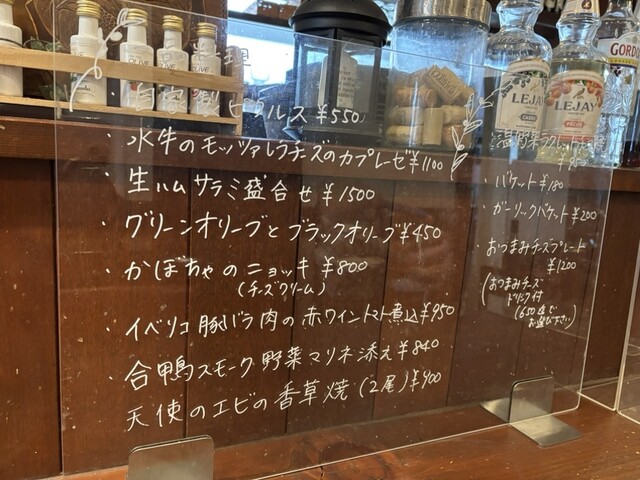 自家製ピクルス ¥550
・水牛のモッツァレラチーズのカプレーゼ ¥1100
・生ハムサラミ盛合せ ¥1500
・グリーンオリーブとブラックオリーブ ¥450
・かぼちゃのニョッキ ¥800
(チーズクリーム)
・イベリコ豚バラ肉の赤ワイントマト煮込 ¥950
・合鴨スモーク野菜マリネ添え ¥840
天使のエビの香草焼(2尾) ¥900
・バケット ¥180
・ガーリックバケット ¥200
・おつまみチーズプレート
¥1200
(おつまみチーズ
ドリンク付
(650迄で
お選び下さい)
LEJAY
LEJAY
GORDON
OLIVE